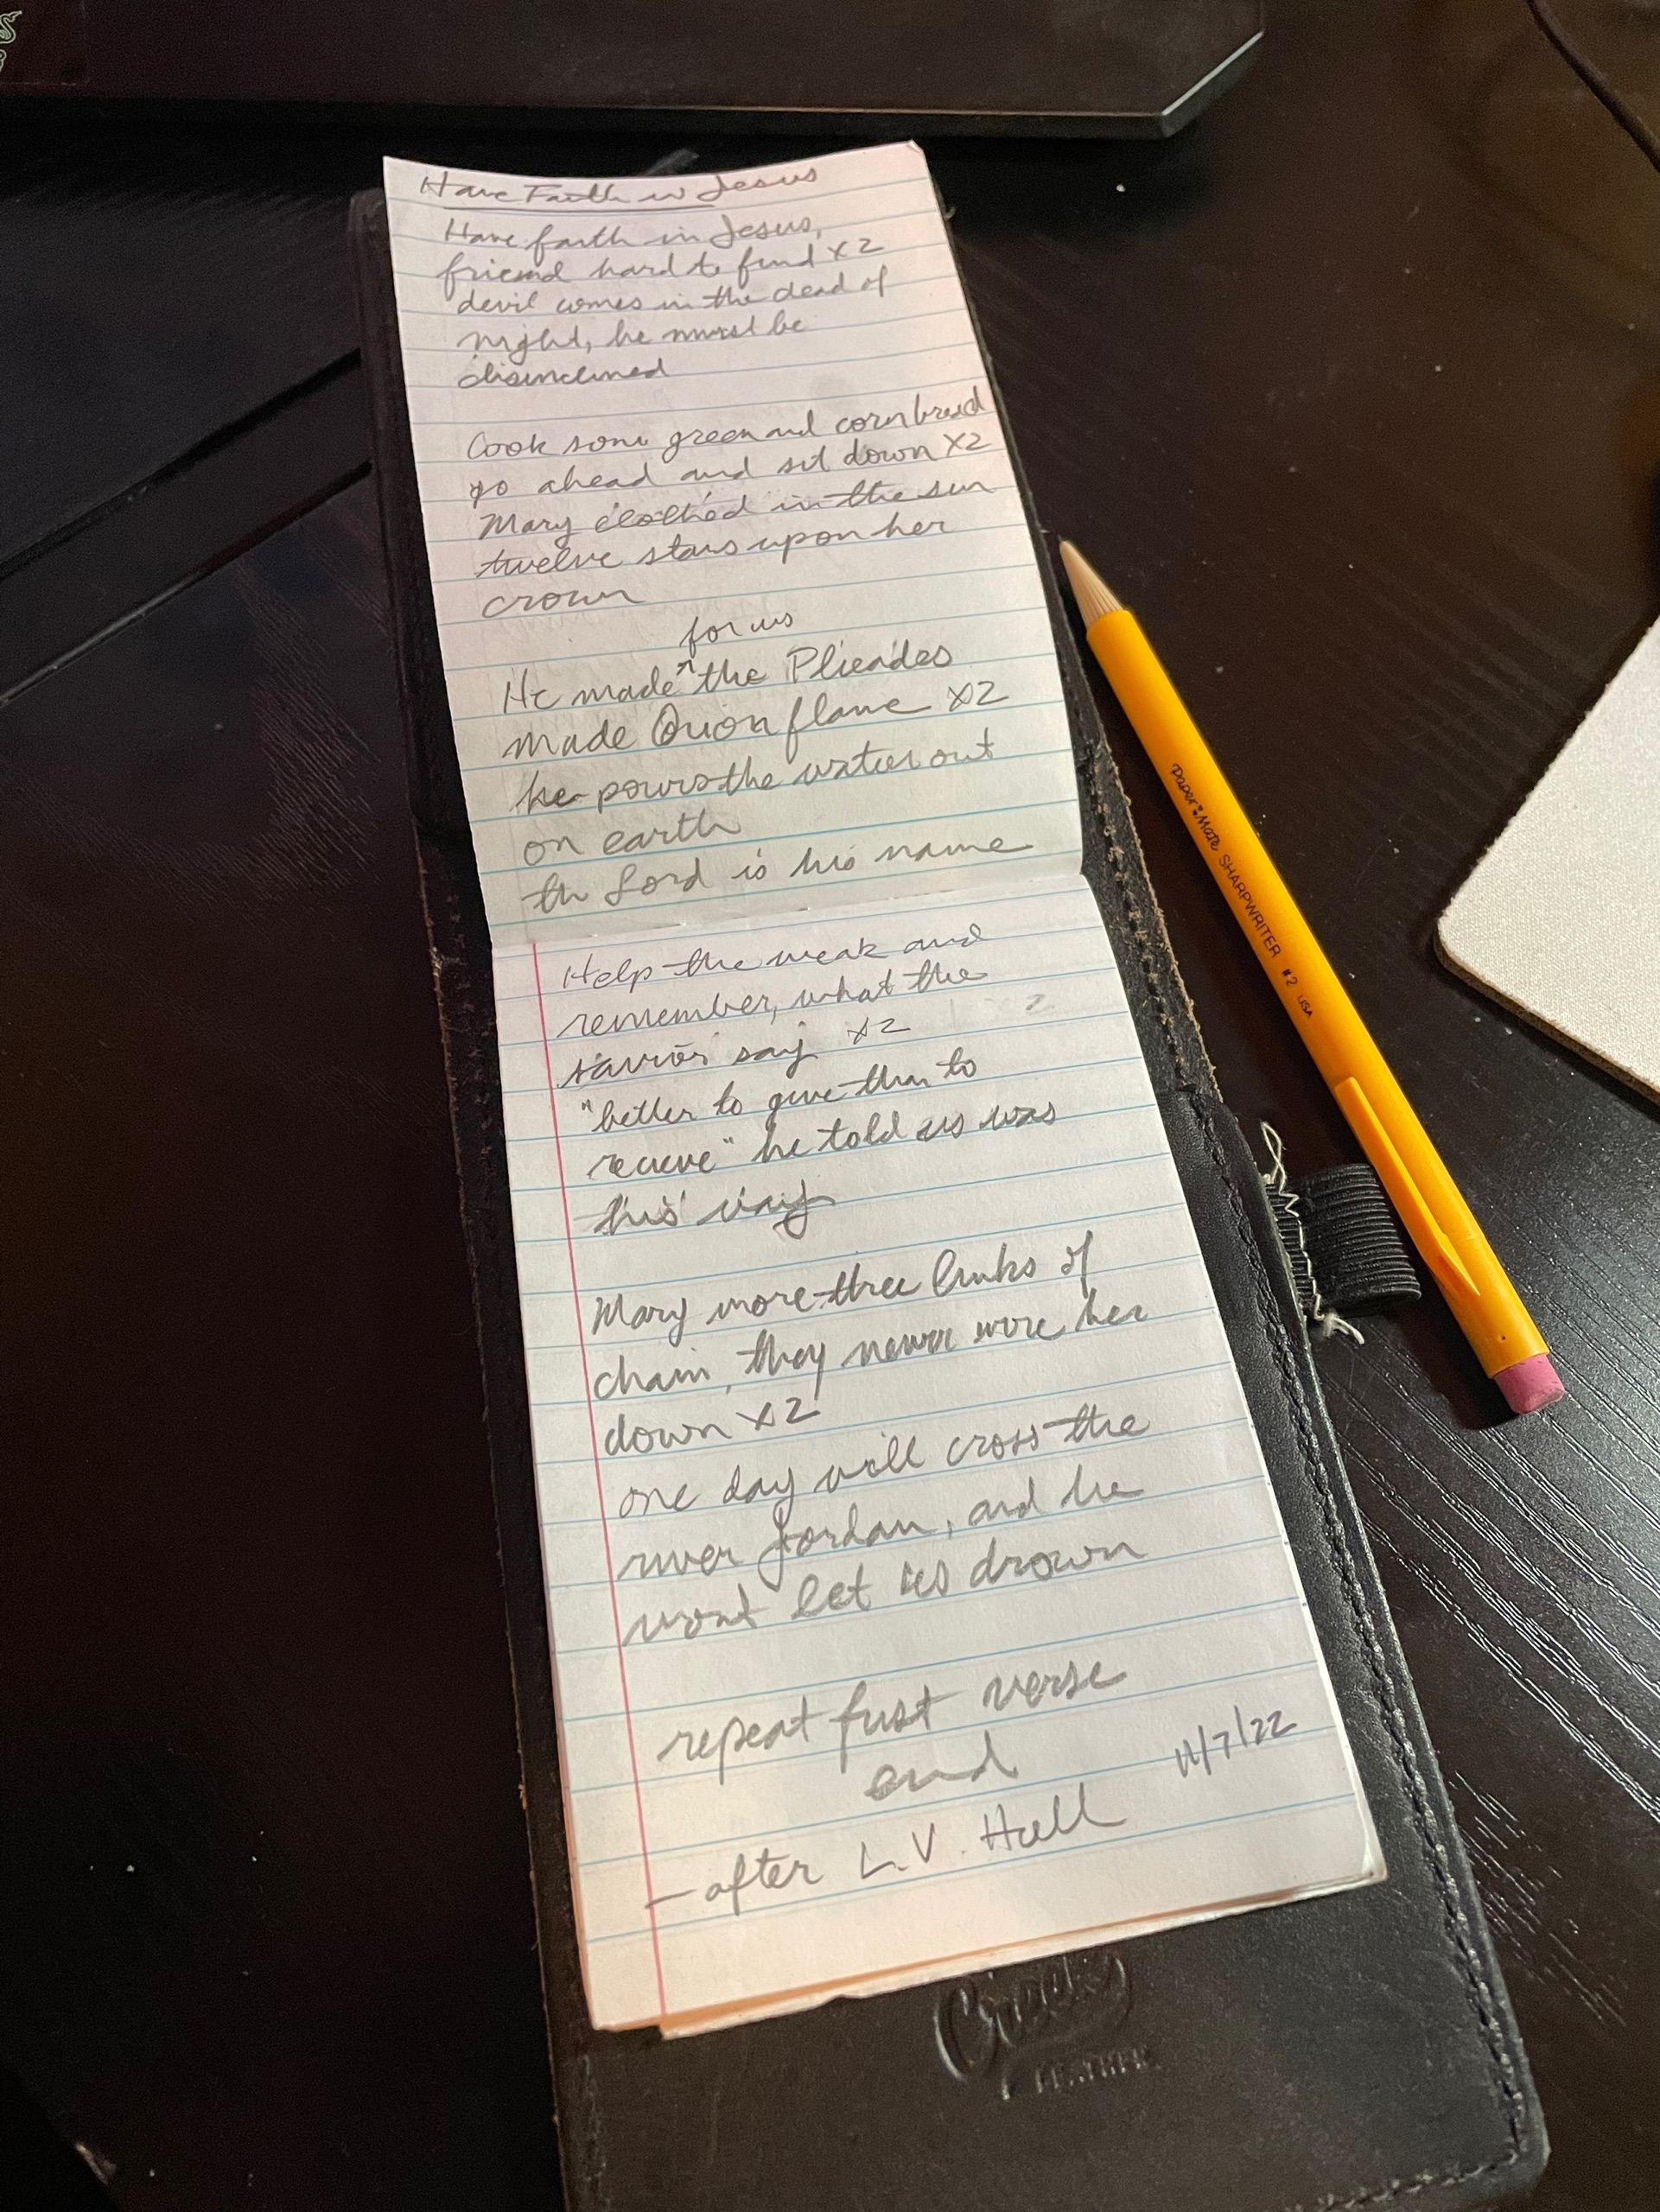 Have Faith in Jesus
Have faith in Jesus,
friend hard to find x2
devil comes in the dead of
night, he must be
disinclined
Cook some green and cornbread
go ahead and sit down x2
Mary clothed in the sun
twelve stars upon her
crown
for us
He made ^ the Plieades
made Orion flame x2
he pours the water out
on earth
the Lord is his name
Help the weak and
remember, what the
savior say x2
"better to give than to
recieve" he told us was
this way
Mary wore three links of
chain, they never wore her
down x2
one day will cross the
river Jordan, and he
wont let us drown
repeat first verse
end
11/7/22
—after L.V. Hull
Paper Mate SHARPWRITER #2 USA
LEATHER